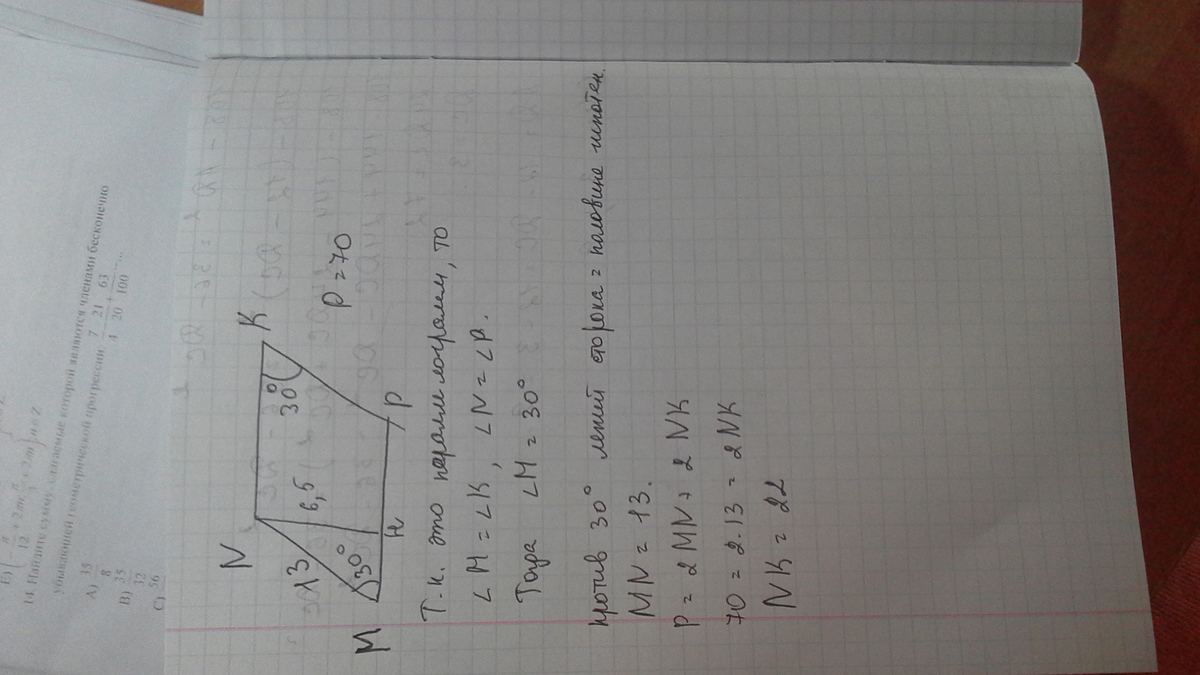 14. Найдите сумму, слагаемые которой являются членами бесконечно
убывающей геометрической прогрессии 7/4 + 21/20 + 63/100 ...
A) 35/8
B) 35/32
C) 56
N
K
13
6,5
30°
30°
M
H
P
P = 70
Т.к. это параллелограмм, то
∠M = ∠K, ∠N = ∠P.
Тогда ∠M = 30°
против 30° лежит сторона = половине гипотен.
MN = 13.
P = 2MN + 2NK
70 = 2·13 = 2NK
NK = 22